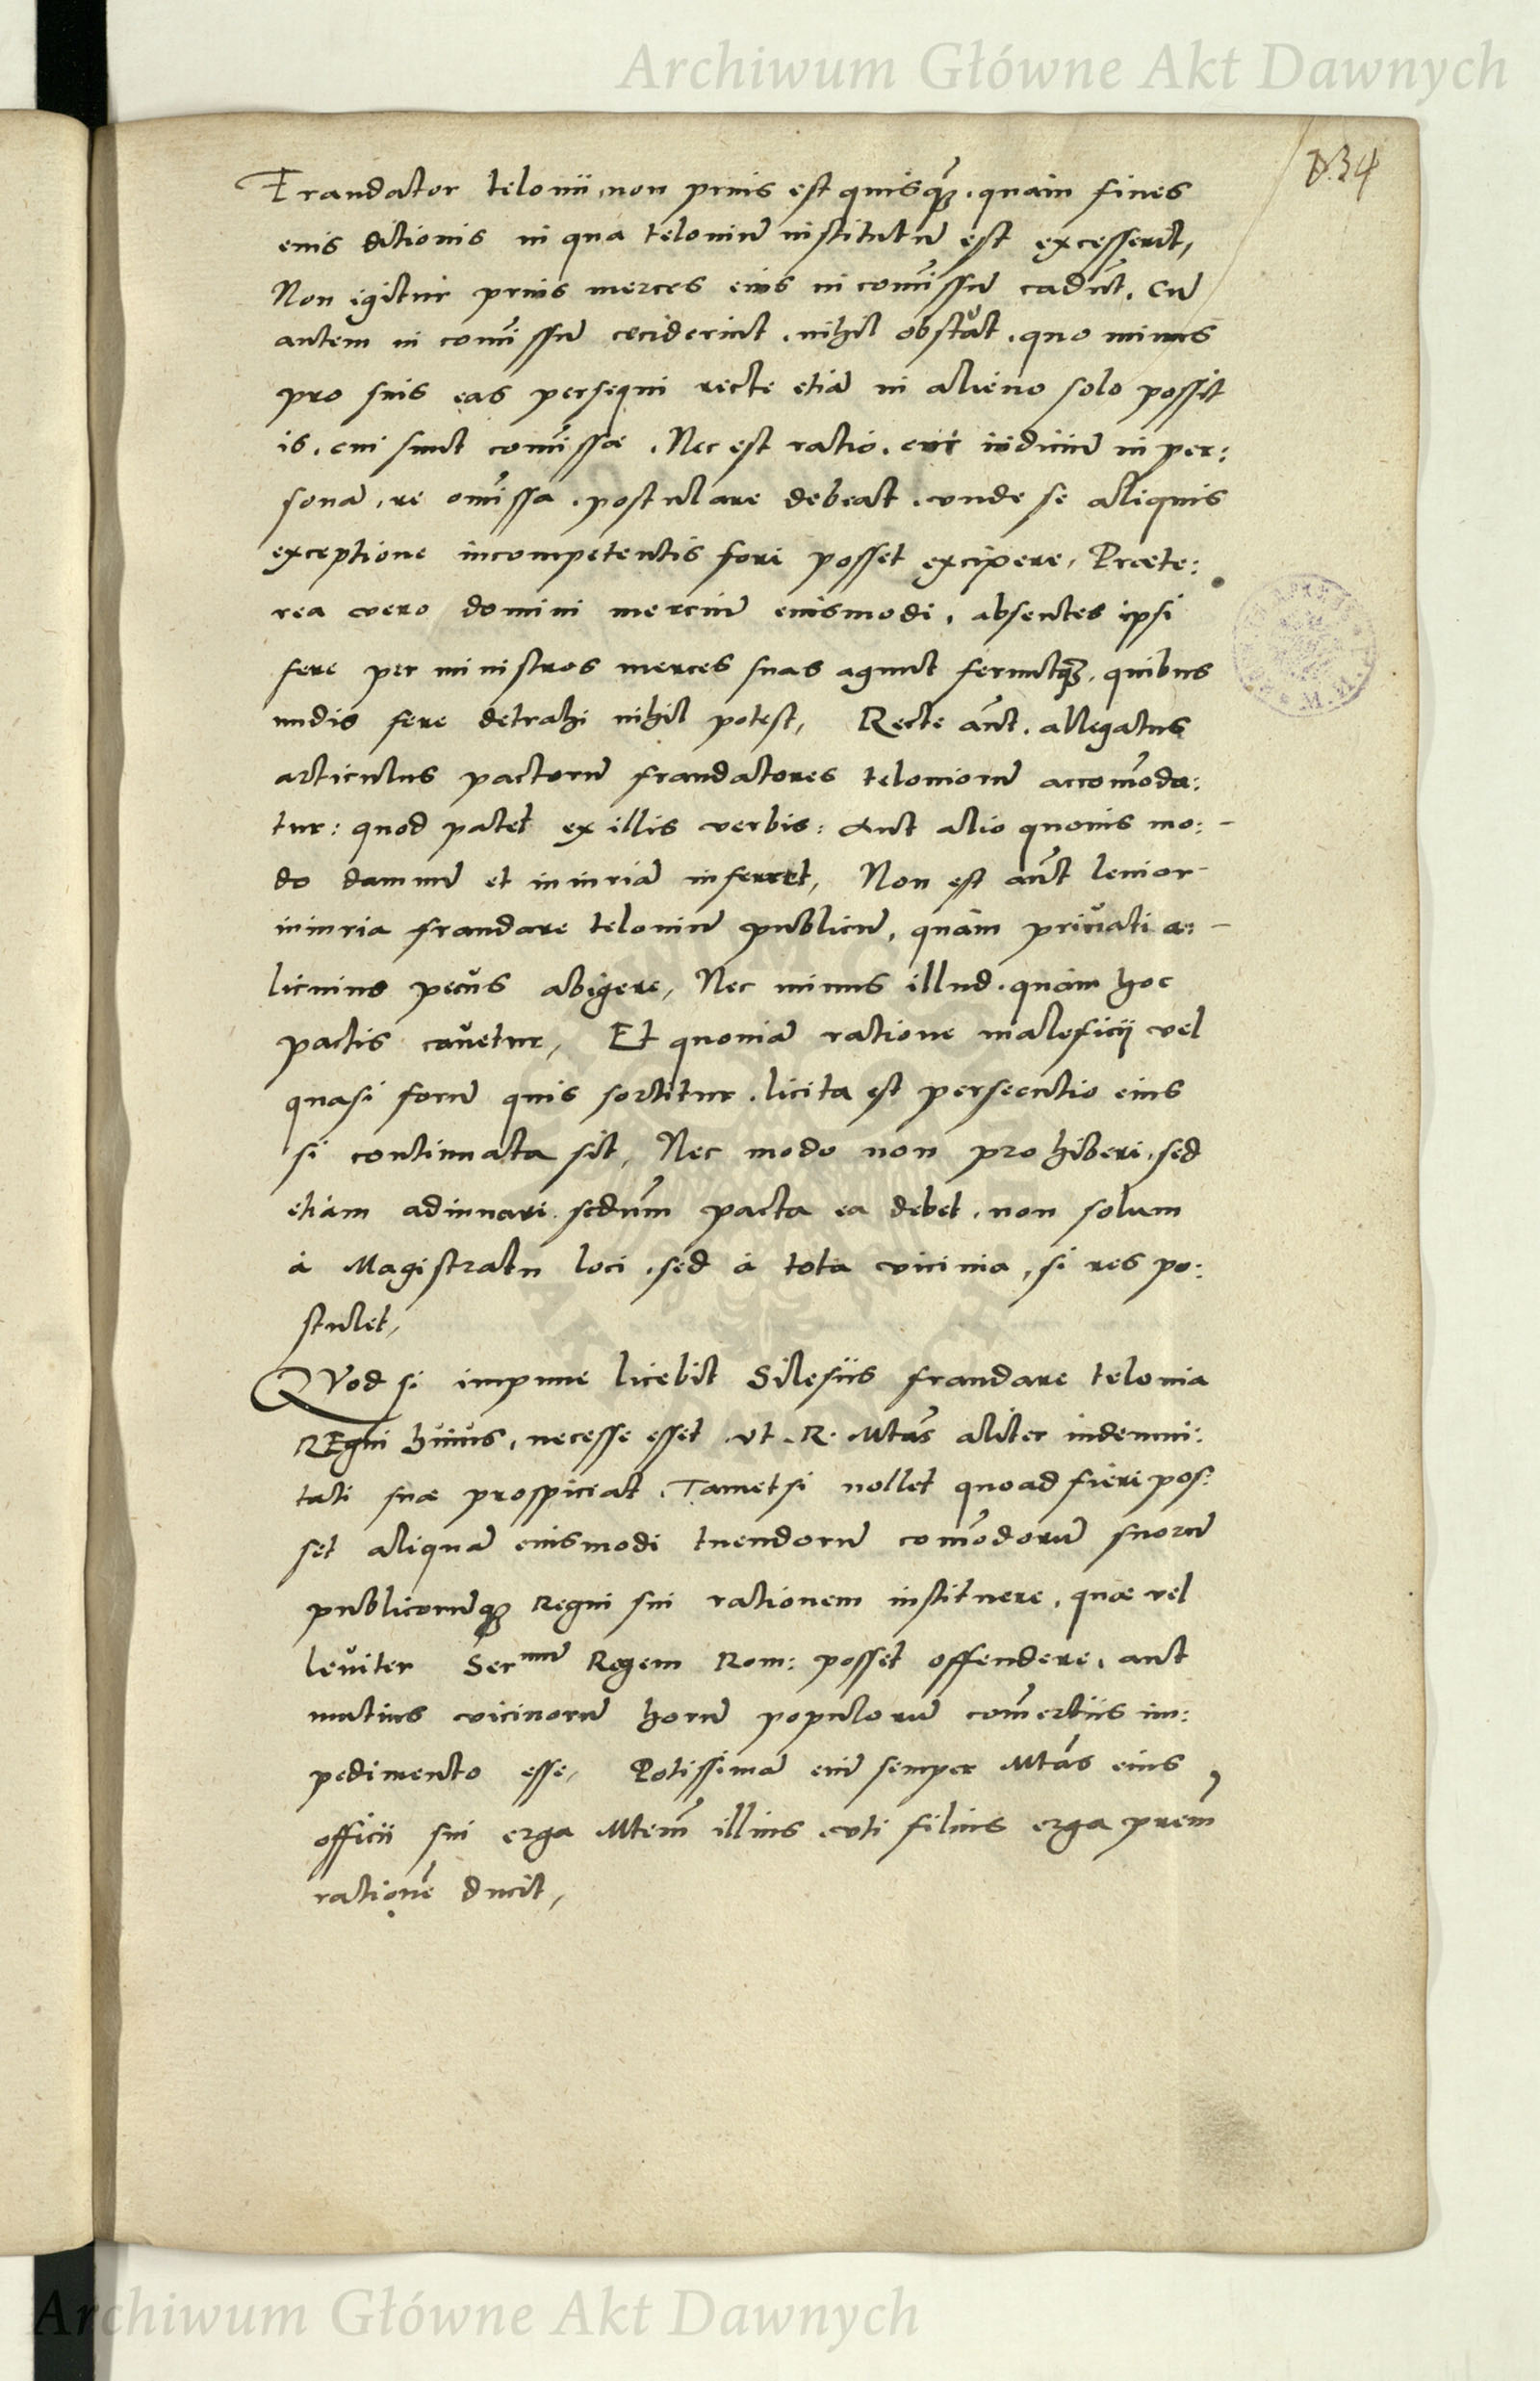 Archiwum Główne Akt Dawnych
834
Fraudator telonii, non prius est quisq̃, quam fines
eius ditionis in qua teloniũ institutũ est excesserit,
Non igitur prius merces eius in com̃issũ cadũt. Cũ
autem in com̃issũ ceciderint, nihil obstat, quo minus
pro suis eas persequi recte etiã in alieno solo possit
is, cui sunt com̃issæ. Nec est ratio, cur iudiciũ in per:
sonã, re om̃issa, postulare debeat, vnde se aliquis
exceptione incompetentis fori posset excipere, Præte:
rea vero domini merciũ eiusmodi, absentes ipsi
fere per ministros merces suas agunt feruntq, quibus
nudis fere detrahi nihil potest, Recte aũt, allegatus
articulus pactorũ fraudatores teloniorũ accom̃oda:
tur: quod patet ex illis verbis: Aut alio quouis mo:
do damnũ et iniuriã inferret, Non est aũt leuior
iniuria fraudare teloniũ publicũ, quàm priuati a:
licuius pecus abigere, Nec minus illud, quàm hoc
pactis cauetur, Et quoniã ratione maleficij vel
quasi forũ quis sortitur, licita est persecutio eius
si continuata sit, Nec modo non prohiberi, sed
etiam adiuuari sedm̃ pacta ea debet, non solum
à Magistratu loci, sed à tota vicinia, si res po:
stulet,
QVod si impune licebit Silesiis fraudare telonia
REgni huius, necesse esset vt R. Mtas aliter indemni:
tati suæ prospiciat. Tametsi nollet quoad fieri pos:
set aliquã eiusmodi tuendorũ com̃odorũ suorũ
publicorũq Regni sui rationem instituere, quæ vel
leuiter Sermũ Regem Rom: posset offendere, aut
mutuis vicinorũ horũ populorũ com̃ertiis im:
pedimento esse, Potissimã eñi semper Mtas eius
officii sui erga Mtem̃ illius, vti filius erga prem̃
rationẽ ducit,
Archiwum Główne Akt Dawnych